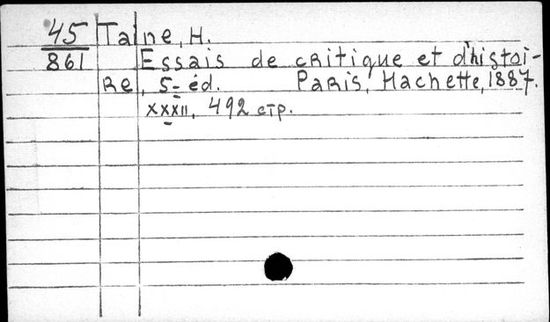 45 Taine, H.
861 Essais de critique et d'histoi-
re, 5-éd. Paris, Hachette, 1887.
XXXII, 492 стр.